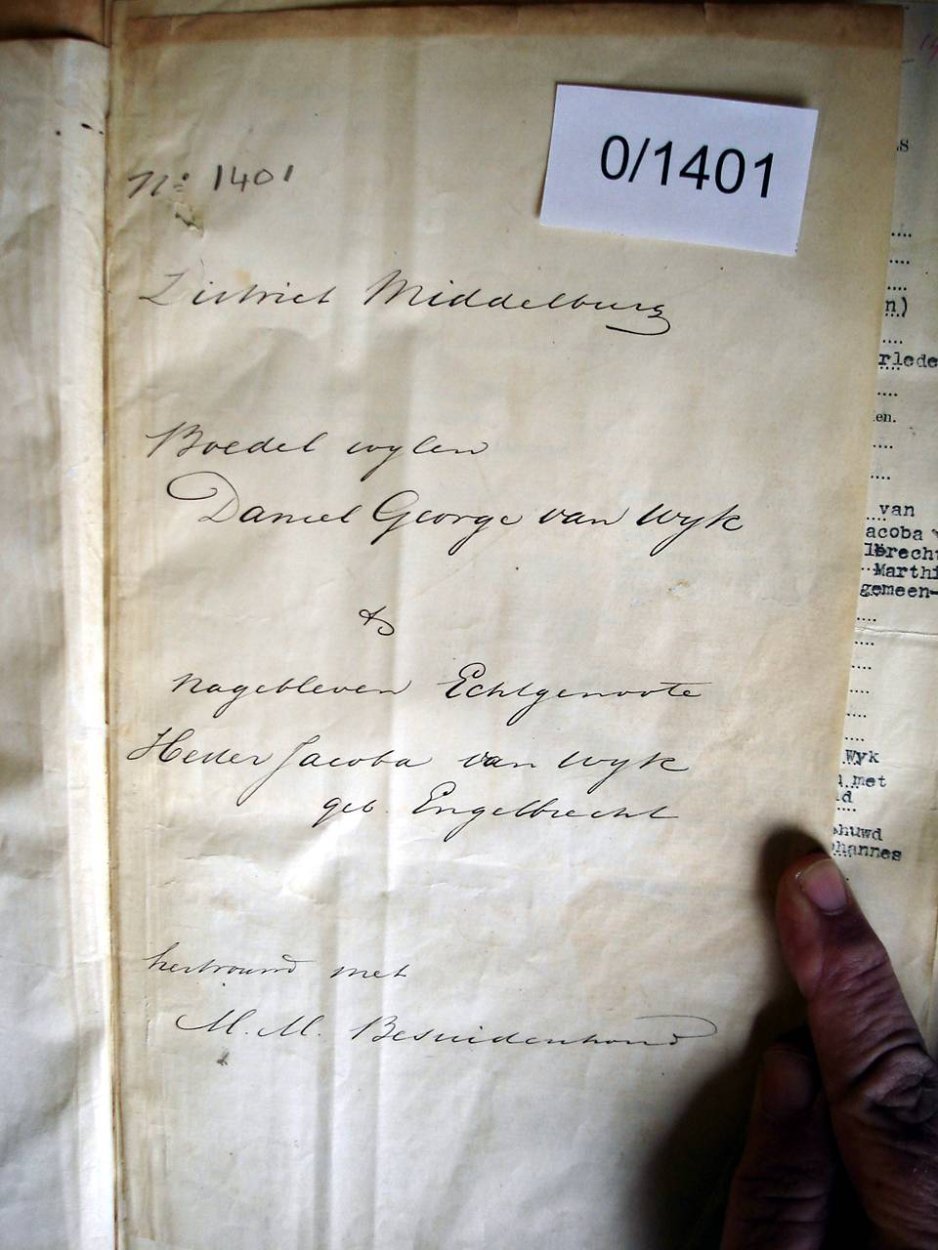 0/1401
No: 1401
District Middelburg
Boedel wylen
Daniel George van Wyk
&
nagebleven Echtgenoote
Hester Jacoba van Wyk
geb. Engelbrecht
hertrouwd met
M. M. Besuidenhoud
n)
rlede
en.
van
acoba
lbrecht
Marthi
gemeen-
Wyk
met
d
huwd
hannes